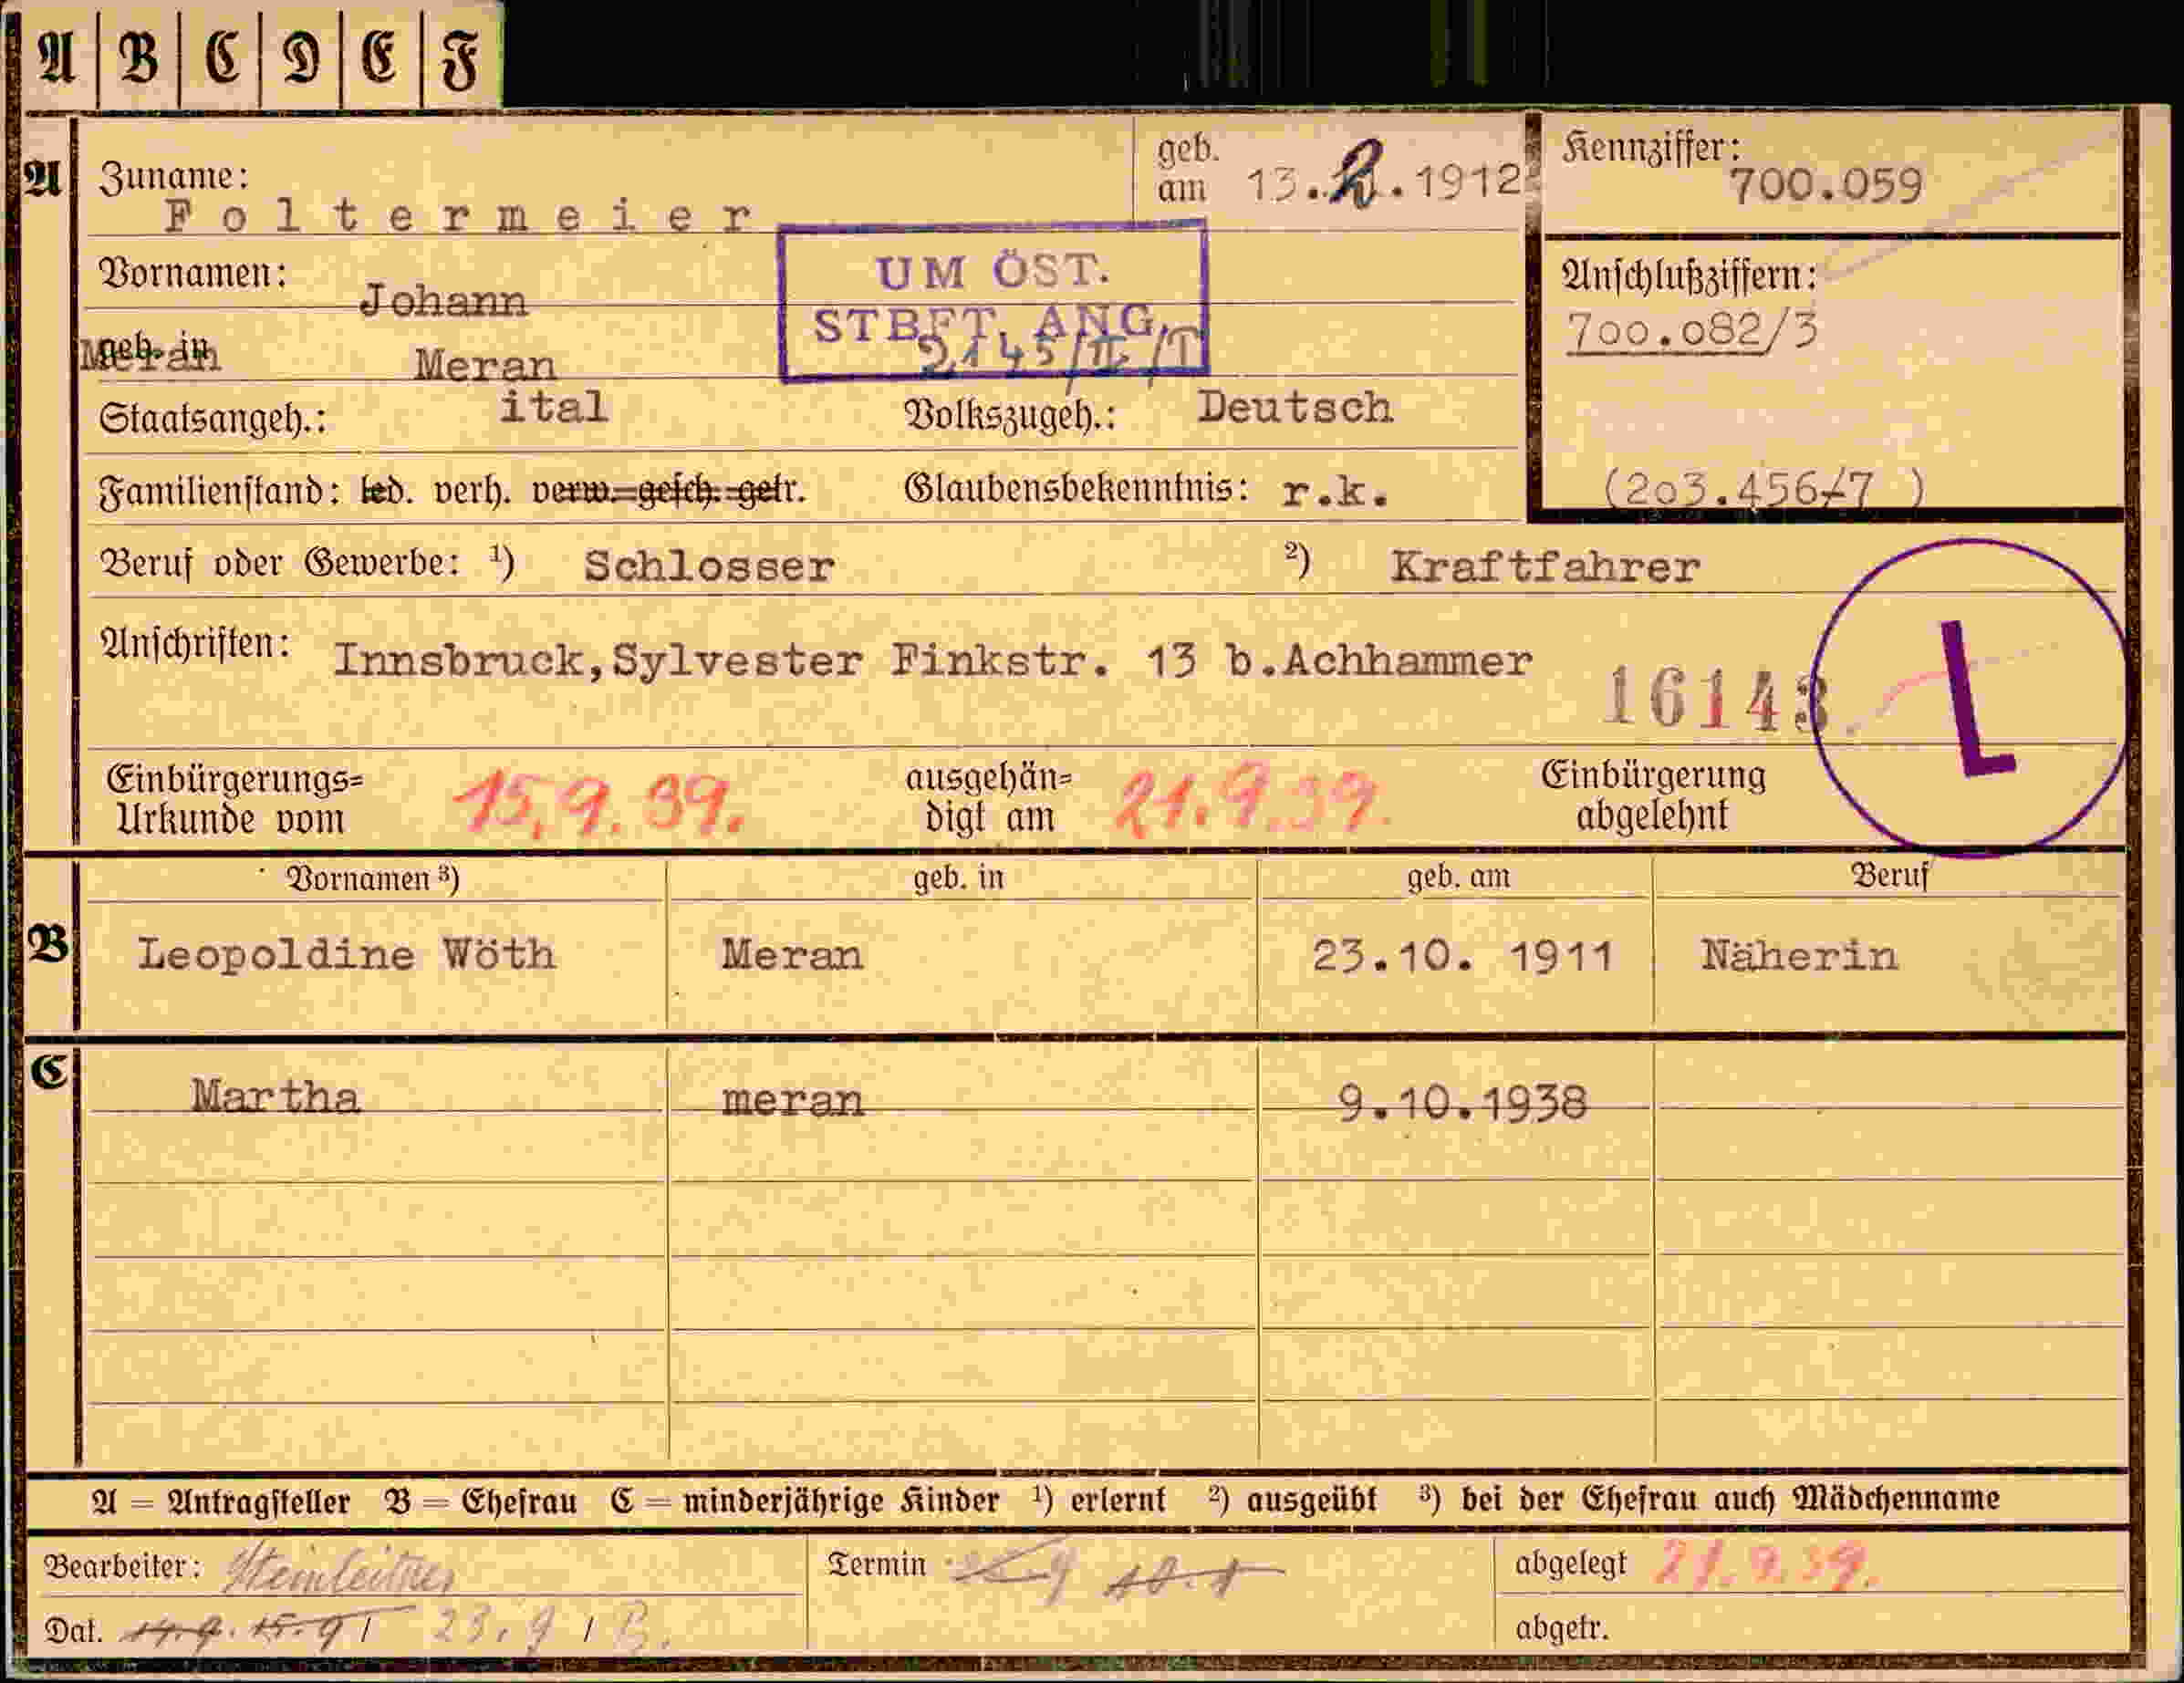 A B C D E F
A
Zuname: Foltermeier
geb. am 13.2.1912
Kennziffer: 700.059
Vornamen: Johann
UM ÖST. STBFT. ANG.
2145/II/T
Anschlußziffern:
700.082/3
geb. in Meran Meran
Staatsangeh.: ital Volkszugeh.: Deutsch
Familienstand: led. verh. verw. gesch. getr. Glaubensbekenntnis: r.k.
(203.456/7 )
Beruf oder Gewerbe: 1) Schlosser 2) Kraftfahrer
Anschriften: Innsbruck,Sylvester Finkstr. 13 b.Achhammer
16143
L
Einbürgerungs= Urkunde vom 15.9.39. ausgehän= digt am 21.9.39. Einbürgerung abgelehnt
Vornamen 3) geb. in geb. am Beruf
B Leopoldine Wöth Meran 23.10. 1911 Näherin
C Martha meran 9.10.1938
A = Antragsteller B = Ehefrau C = minderjährige Kinder 1) erlernt 2) ausgeübt 3) bei der Ehefrau auch Mädchenname
Bearbeiter: Steinleitner Termin abgelegt 21.9.39.
Dat. 14.9. 15.9/ 23.9 / B. abgetr.